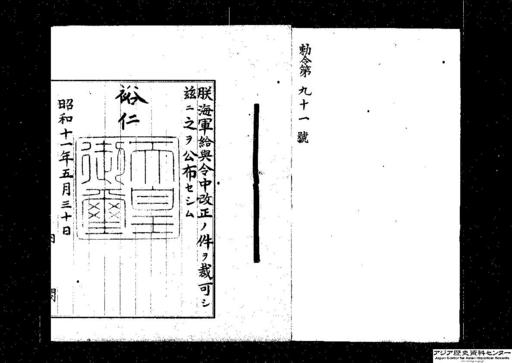 勅令第九十一號
朕海軍給與令中改正ノ件ヲ裁可シ
玆ニ之ヲ公布セシム
裕仁
天皇御璽
昭和十一年五月三十日
内閣
アジア歴史資料センター
Japan Center for Asian Historical Records